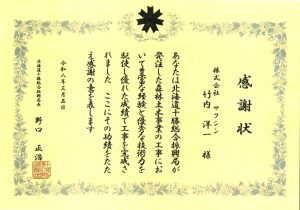 感謝状
株式会社 サクシン
竹内 洋一 様
あなたは北海道十勝総合振興局が
発注した森林土木事業の工事にお
いて豊富な経験と優秀な技術力を
駆使し優れた成績で工事を完成さ
れました ここにその功績をたた
え感謝の意を表します
令和八年三月五日
北海道十勝総合振興局長
野口 正浩